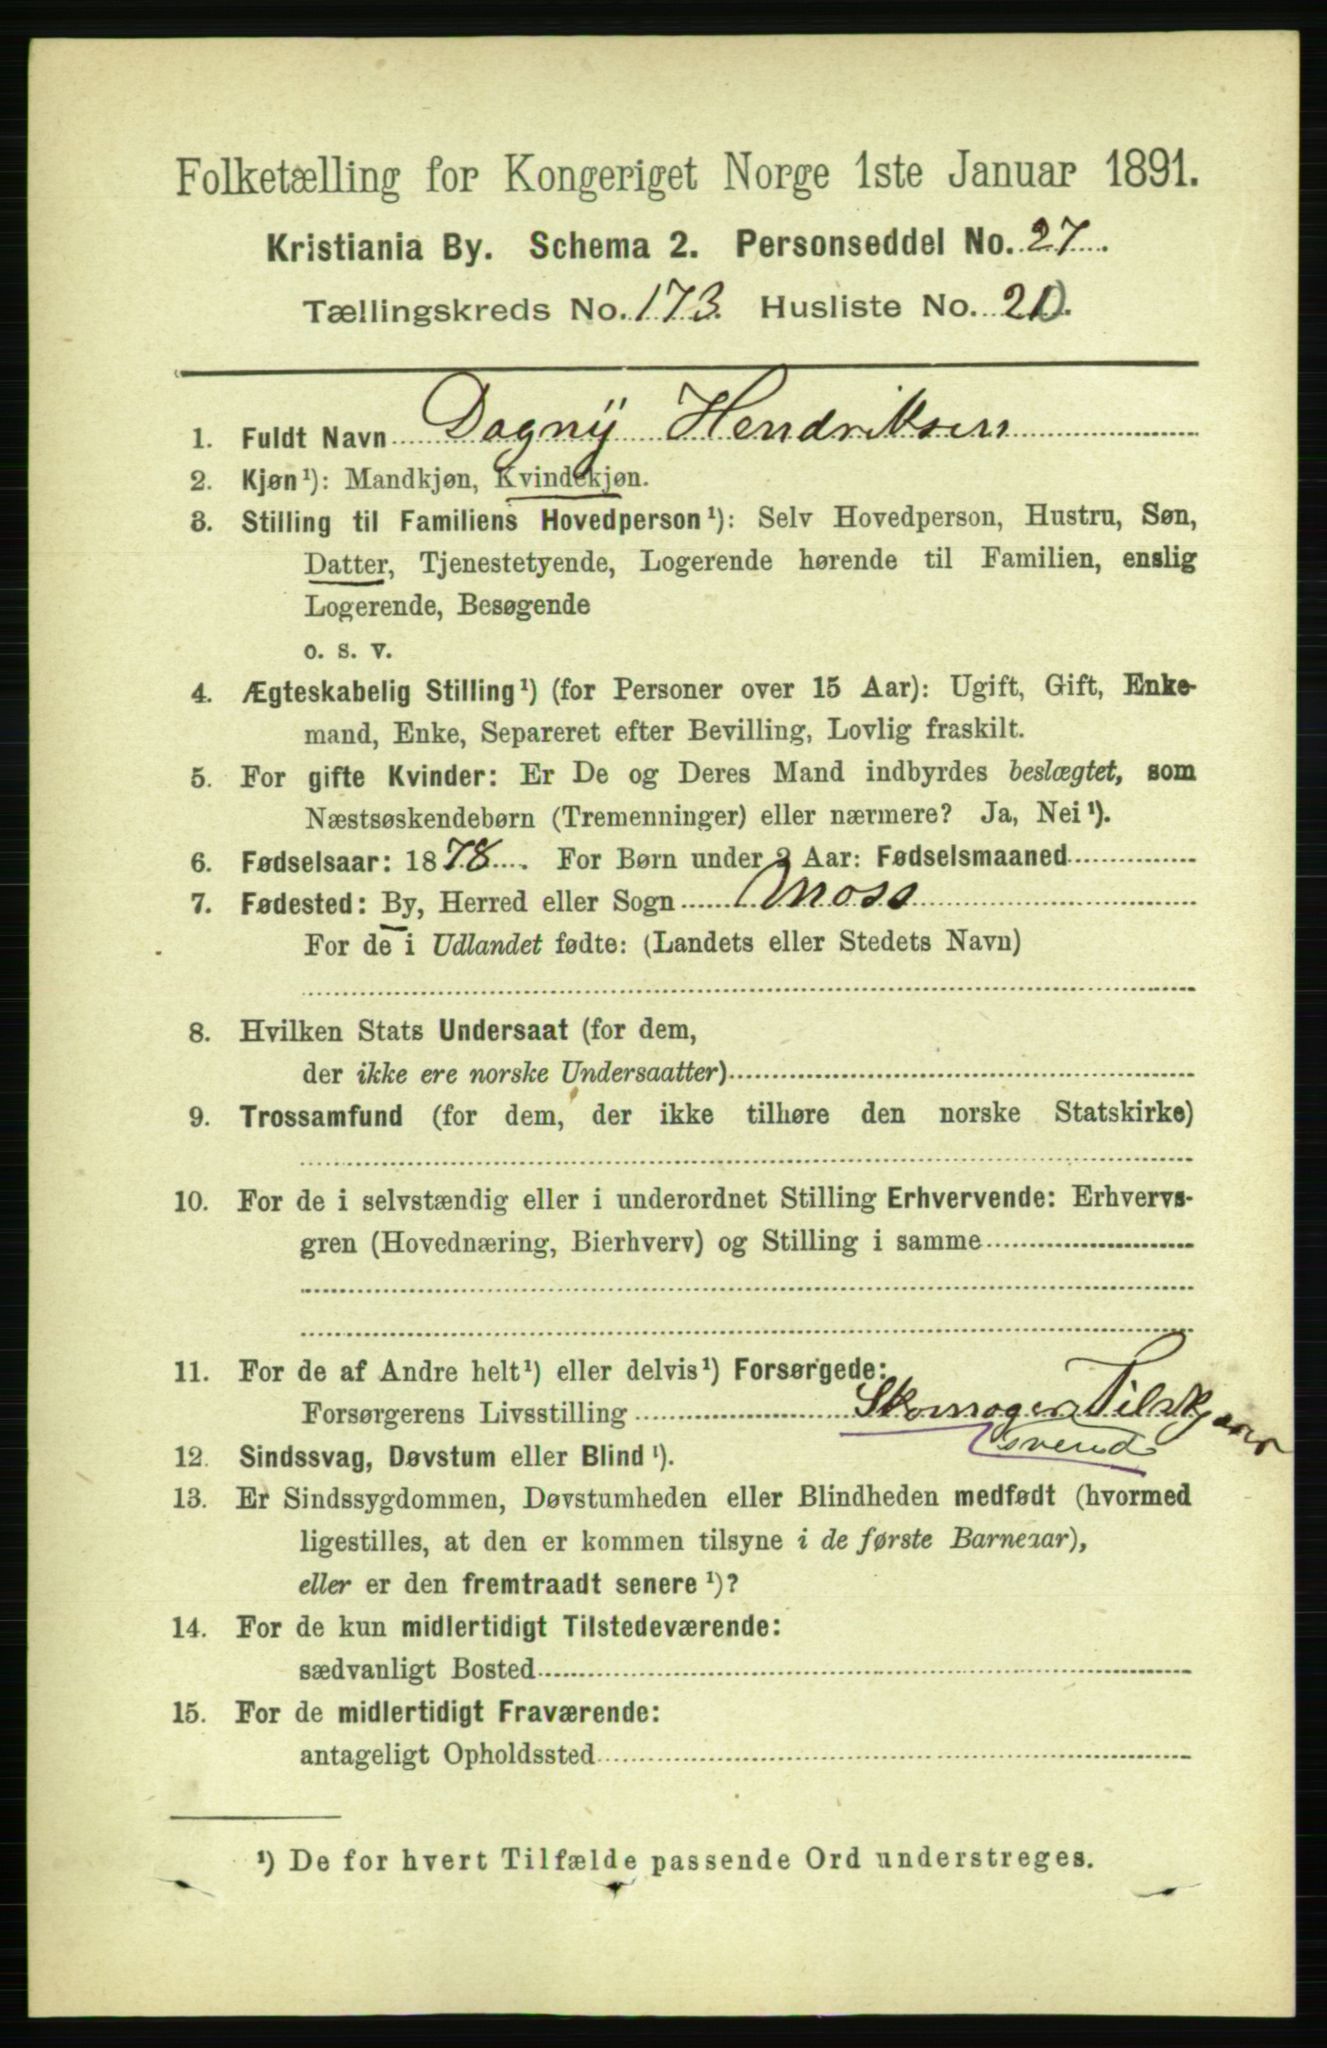 Folketælling for Kongeriget Norge 1ste Januar 1891.
Kristiania By. Schema 2. Personseddel No. 27
Tællingskreds No. 173. Husliste No. 20.
1. Fuldt Navn Dagny Hendriksen
2. Kjøn¹): Mandkjøn, Kvindekjøn.
3. Stilling til Familiens Hovedperson¹): Selv Hovedperson, Hustru, Søn,
Datter, Tjenestetyende, Logerende hørende til Familien, enslig
Logerende, Besøgende
o. s. v.
4. Ægteskabelig Stilling¹) (for Personer over 15 Aar): Ugift, Gift, Enke-
mand, Enke, Separeret efter Bevilling, Lovlig fraskilt.
5. For gifte Kvinder: Er De og Deres Mand indbyrdes beslægtet, som
Næstsøskendebørn (Tremenninger) eller nærmere? Ja, Nei¹).
6. Fødselsaar: 1878. For Børn under 2 Aar: Fødselsmaaned
7. Fødested: By, Herred eller Sogn Moss
For de i Udlandet fødte: (Landets eller Stedets Navn)
8. Hvilken Stats Undersaat (for dem,
der ikke ere norske Undersaatter)
9. Trossamfund (for dem, der ikke tilhøre den norske Statskirke)
10. For de i selvstændig eller i underordnet Stilling Erhvervende: Erhvervs-
gren (Hovednæring, Bierhverv) og Stilling i samme
11. For de af Andre helt¹) eller delvis¹) Forsørgede:
Forsørgerens Livsstilling Skomager Tilskjærer
svend
12. Sindssvag, Døvstum eller Blind¹).
13. Er Sindssygdommen, Døvstumheden eller Blindheden medfødt (hvormed
ligestilles, at den er kommen tilsyne i de første Barneaar),
eller er den fremtraadt senere¹)?
14. For de kun midlertidigt Tilstedeværende:
sædvanligt Bosted
15. For de midlertidigt Fraværende:
antageligt Opholdssted
¹) De for hvert Tilfælde passende Ord understreges.